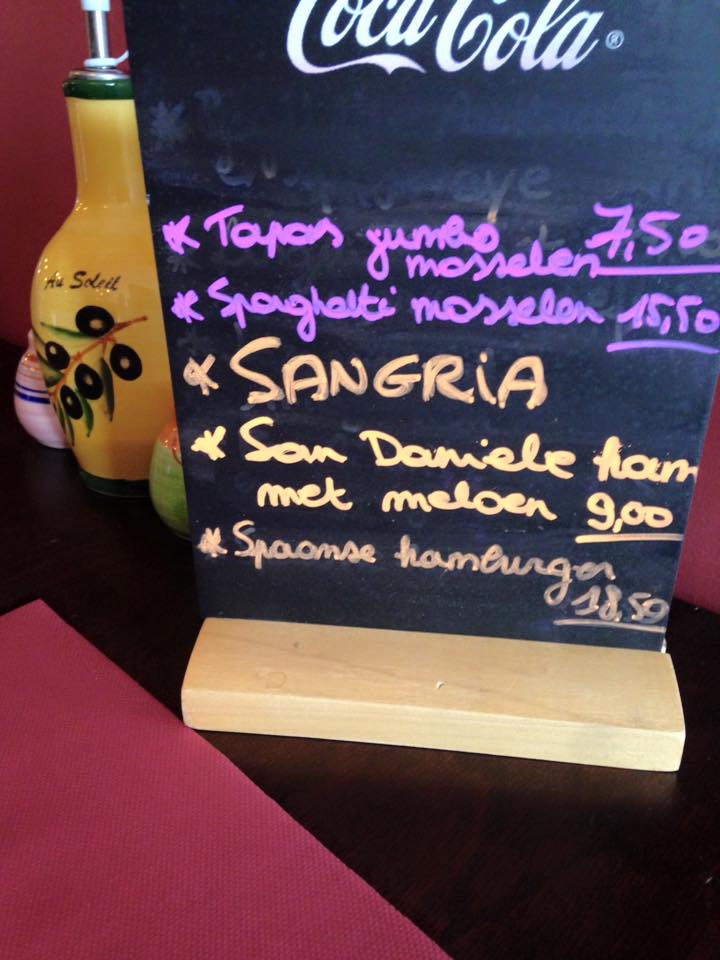 Coca-Cola ®
Au Soleil
* Tapas jumbo 7,50
mosselen
* Spaghetti mosselen 15,50
* SANGRiA
* San Daniele ham
met meloen 9,00
* Spaanse hamburger
18,50